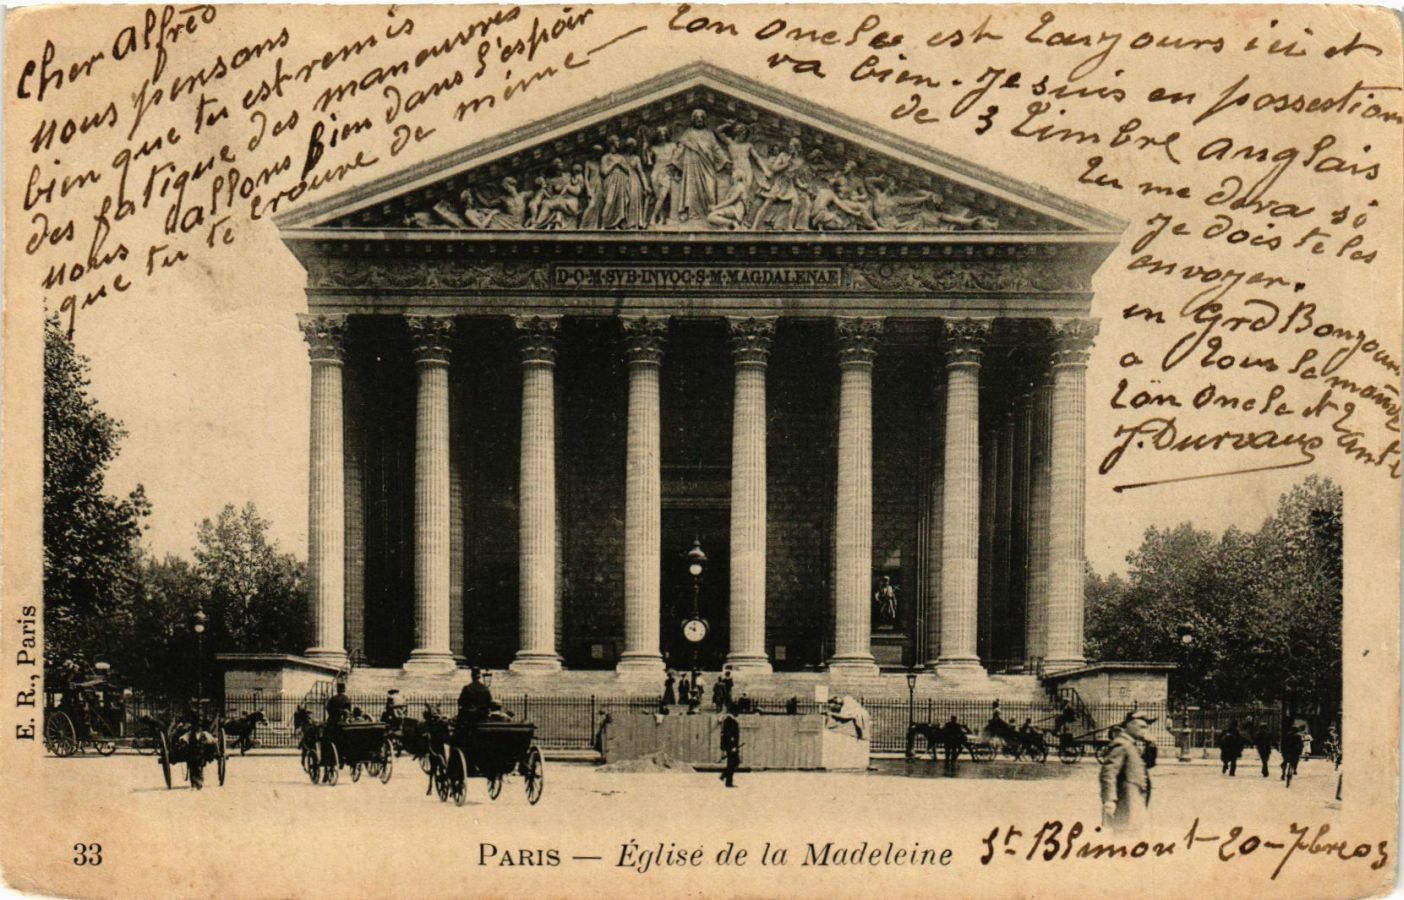 Cher Alfred
nous pensons
bien que tu est remis
des fatigue des maneuvres
nous allons bien dans l'espoir
que tu te trouve de même —
Ton Oncle est toujours ici et
va bien. Je suis en possestion
de 3 timbre anglais
tu me dira si
je dois te les
envoyer.
un Grd Bonjour
a tous le monde
ton Oncle et Tante
J. Durvaux
D·O·M·SVB·INVOC·S·M·MAGDALENAE
E. R., Paris
33
PARIS — Église de la Madeleine
St Blimont - 20 - 7bre 03